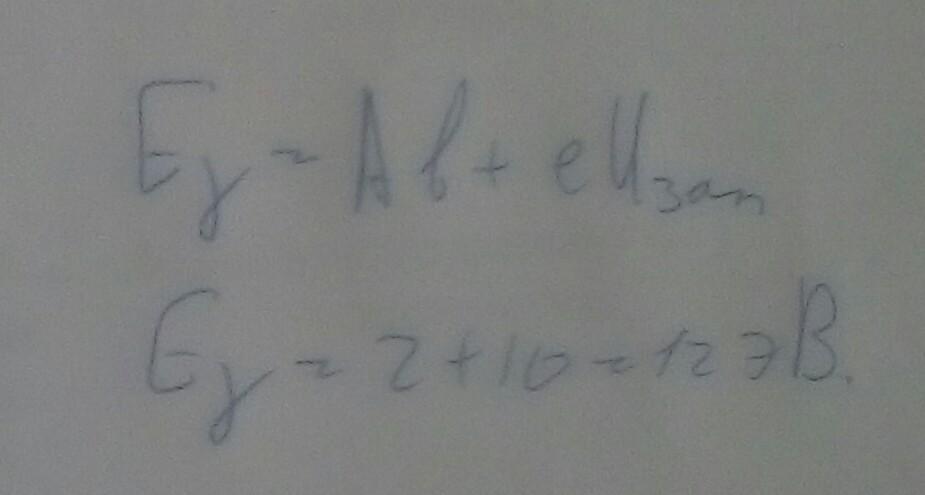 Eγ = Aв + eUзап
Eγ = 2 + 10 = 12 эВ.